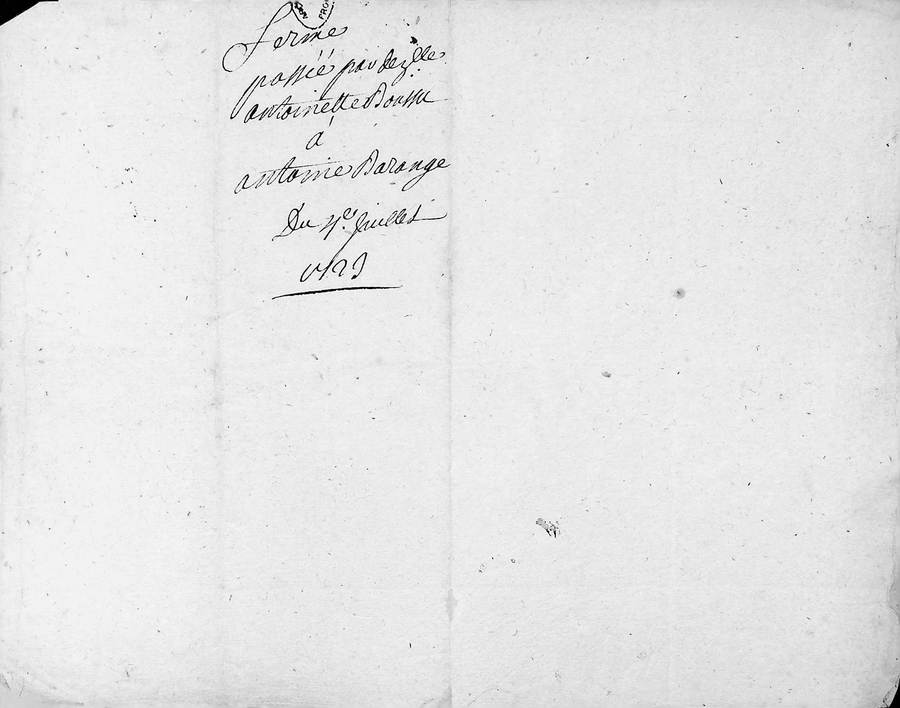 Ferme
passée par dezlle
antoinette Boussu
à
antoine Barange
Du 4e Juillet
1723